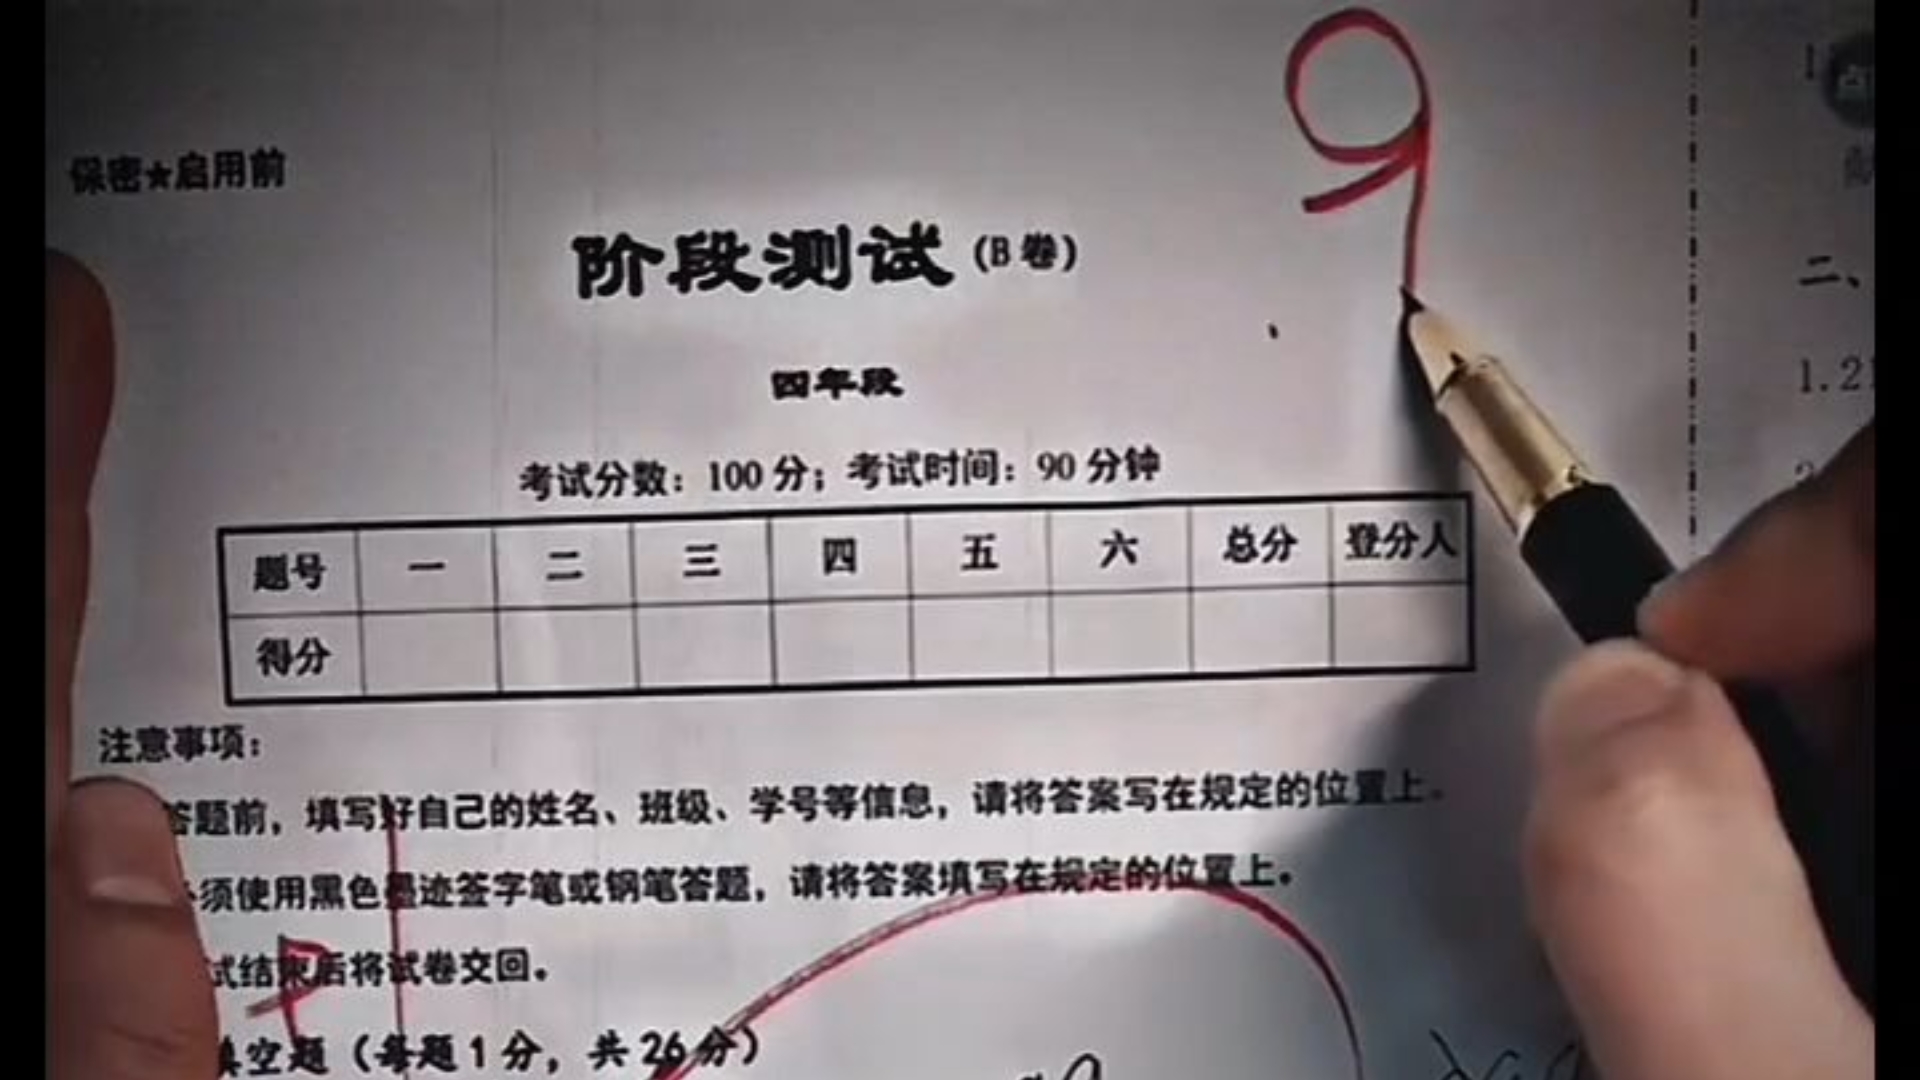 9
保密★启用前
阶段测试(B卷)
四年段
考试分数：100分；考试时间：90分钟
题号 一 二 三 四 五 六 总分 登分人
得分
注意事项：
答题前，填写好自己的姓名、班级、学号等信息，请将答案写在规定的位置上。
须使用黑色墨迹签字笔或钢笔答题，请将答案填写在规定的位置上。
试结束后将试卷交回。
填空题（每题1分，共26分）
二、
1.2